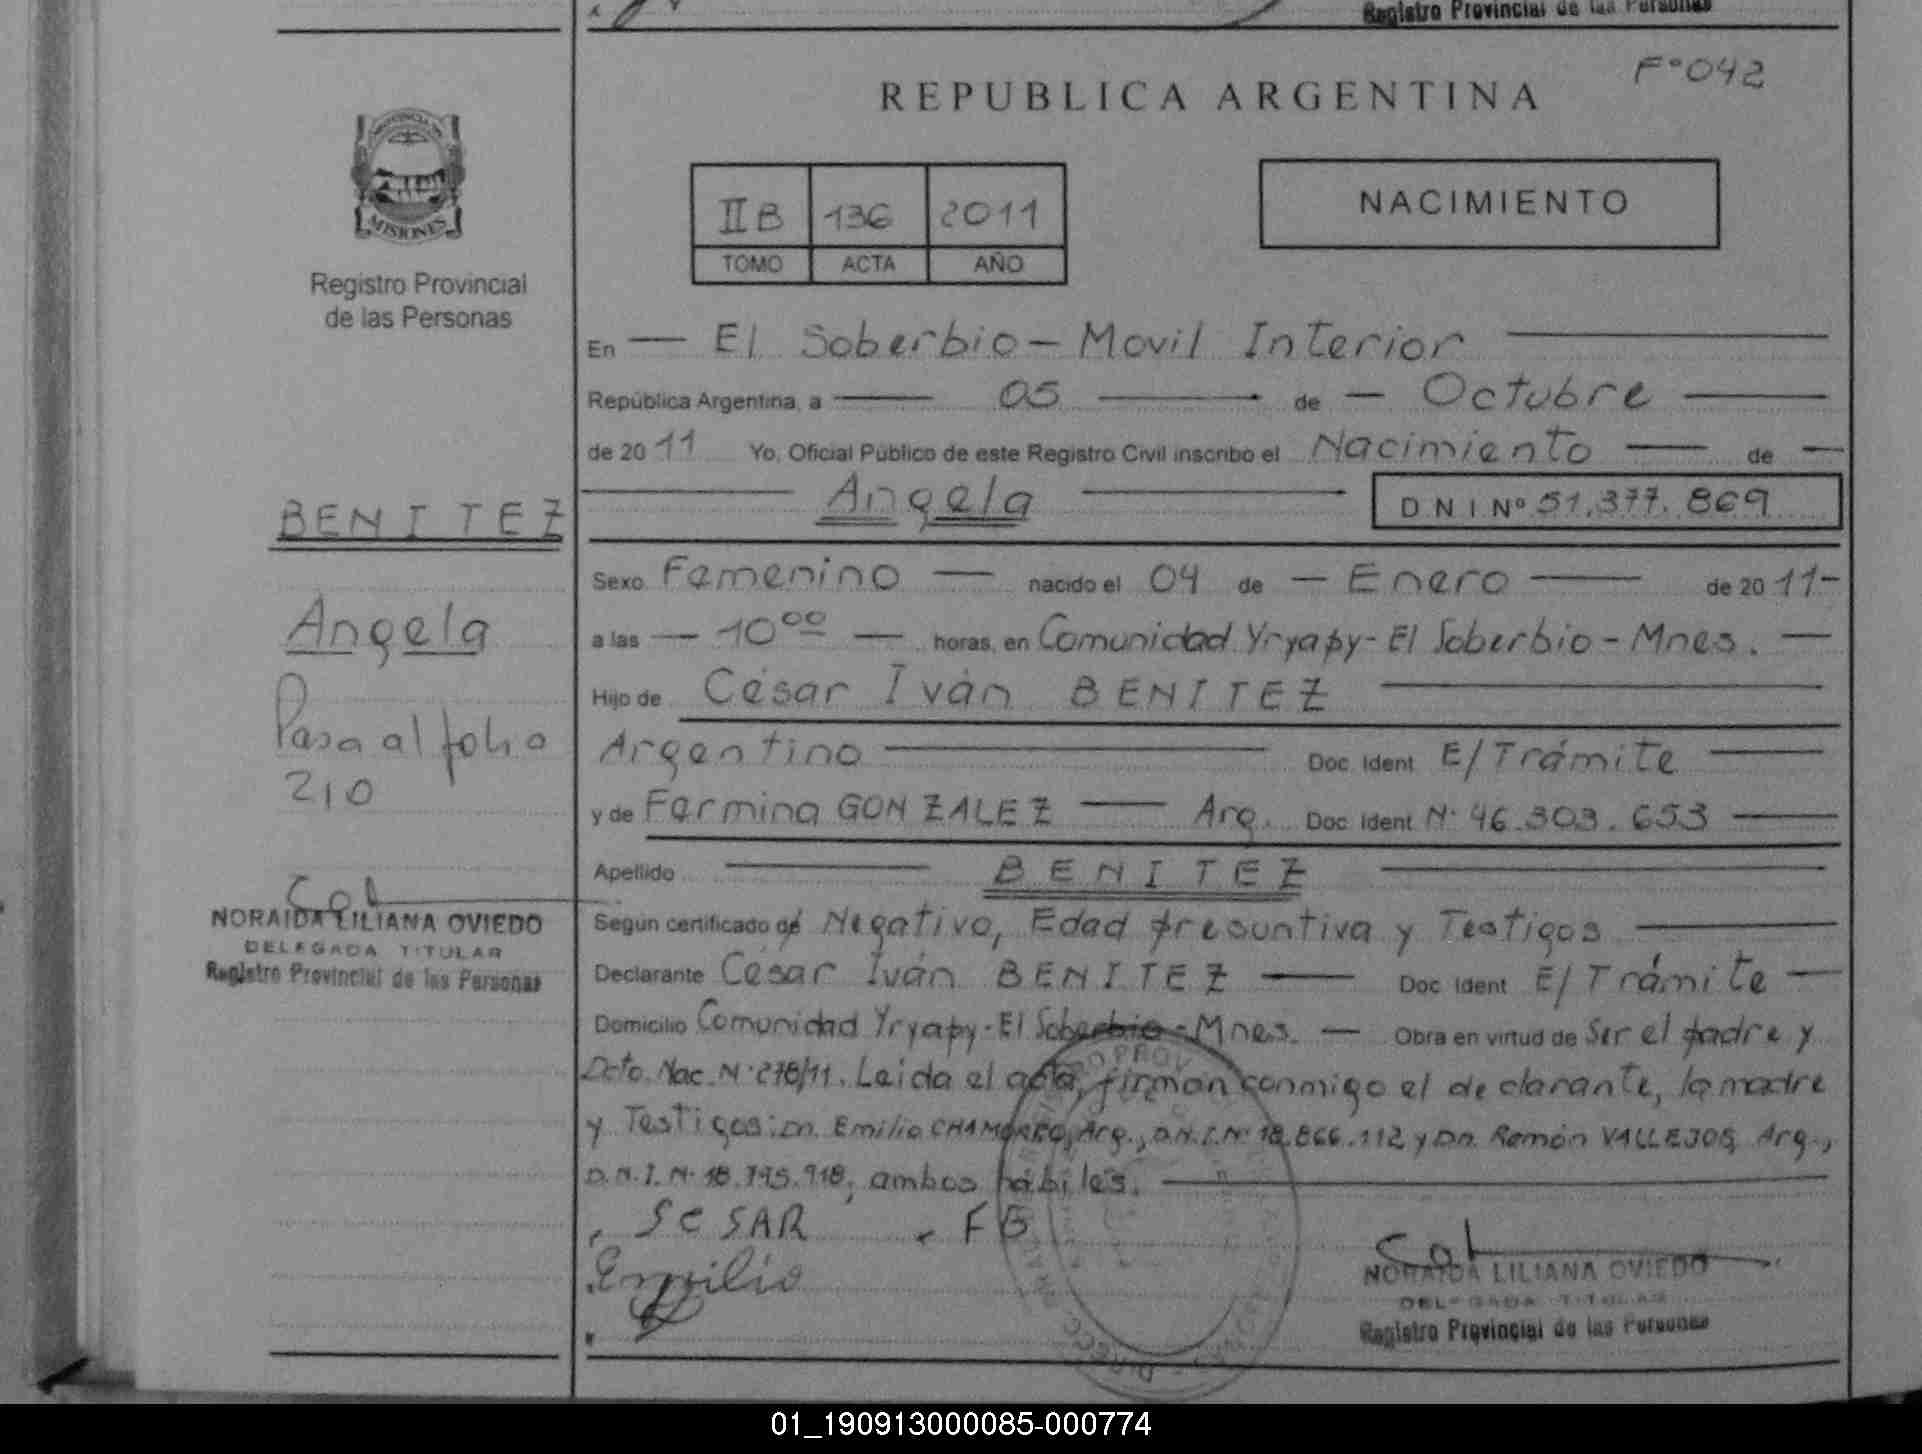 Registro Provincial de las Personas
F° 042
REPUBLICA ARGENTINA
PROVINCIA DE
MISIONES
Registro Provincial
de las Personas
II B 136 2011
TOMO ACTA AÑO
NACIMIENTO
En — El Soberbio - Movil Interior —
República Argentina, a — 05 — de — Octubre —
de 20 11 Yo, Oficial Público de este Registro Civil inscribo el Nacimiento — de —
— Angela — DNI Nº 51.377.869
BENITEZ
Angela
Pasa al folio
210
NORAIDA LILIANA OVIEDO
DELEGADA TITULAR
Registro Provincial de las Personas
Sexo Femenino — nacido el 04 de — Enero — de 20 11-
a las — 10 ºº — horas, en Comunidad Yryapy - El Soberbio - Mnes. —
Hijo de César Iván BENITEZ —
Argentino — Doc. Ident E/ Trámite —
y de Fermina GONZALEZ — Arg. Doc. Ident N· 46.303.653 —
Apellido — BENITEZ —
Según certificado de Negativo, Edad presuntiva y Testigos —
Declarante César Iván BENITEZ — Doc. Ident E/ Trámite —
Domicilio Comunidad Yryapy - El Soberbio - Mnes. — Obra en virtud de Ser el padre y
Dcto. Nac. N· 278/11. Leida el acta, firman conmigo el declarante, la madre
y Testigos: Dn. Emilio CHAMORRO, Arg., D.N.I. Nº 18.866.112 y Dn. Ramón VALLEJOS, Arg.,
D.N.I. N· 18.795.918, ambos hábiles. —
SESAR . FB
Emilio
NORAIDA LILIANA OVIEDO
DELEGADA TITULAR
Registro Provincial de las Personas
01_190913000085-000774